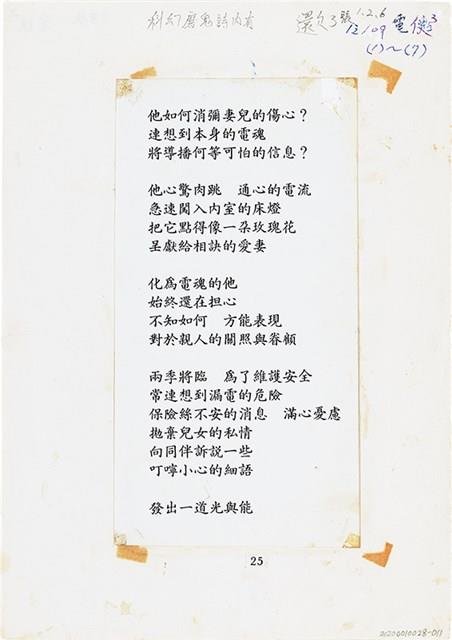 科幻魘鬼詩内有
還欠3張 1.2.6
12109 電俠3
(1)～(7)
他如何消彌妻兒的傷心？
連想到本身的電魂
將導播何等可怕的信息？
他心驚肉跳　通心的電流
急速闖入内室的床燈
把它點得像一朵玫瑰花
呈獻給相訣的愛妻
化為電魂的他
始終還在担心
不知如何　方能表現
對於親人的關照與眷顧
雨季將臨　為了維護安全
常連想到漏電的危險
保險絲不安的消息　滿心憂慮
拋棄兒女的私情
向同伴訴説一些
叮嚀小心的細語
發出一道光與能
25
2020010028-011